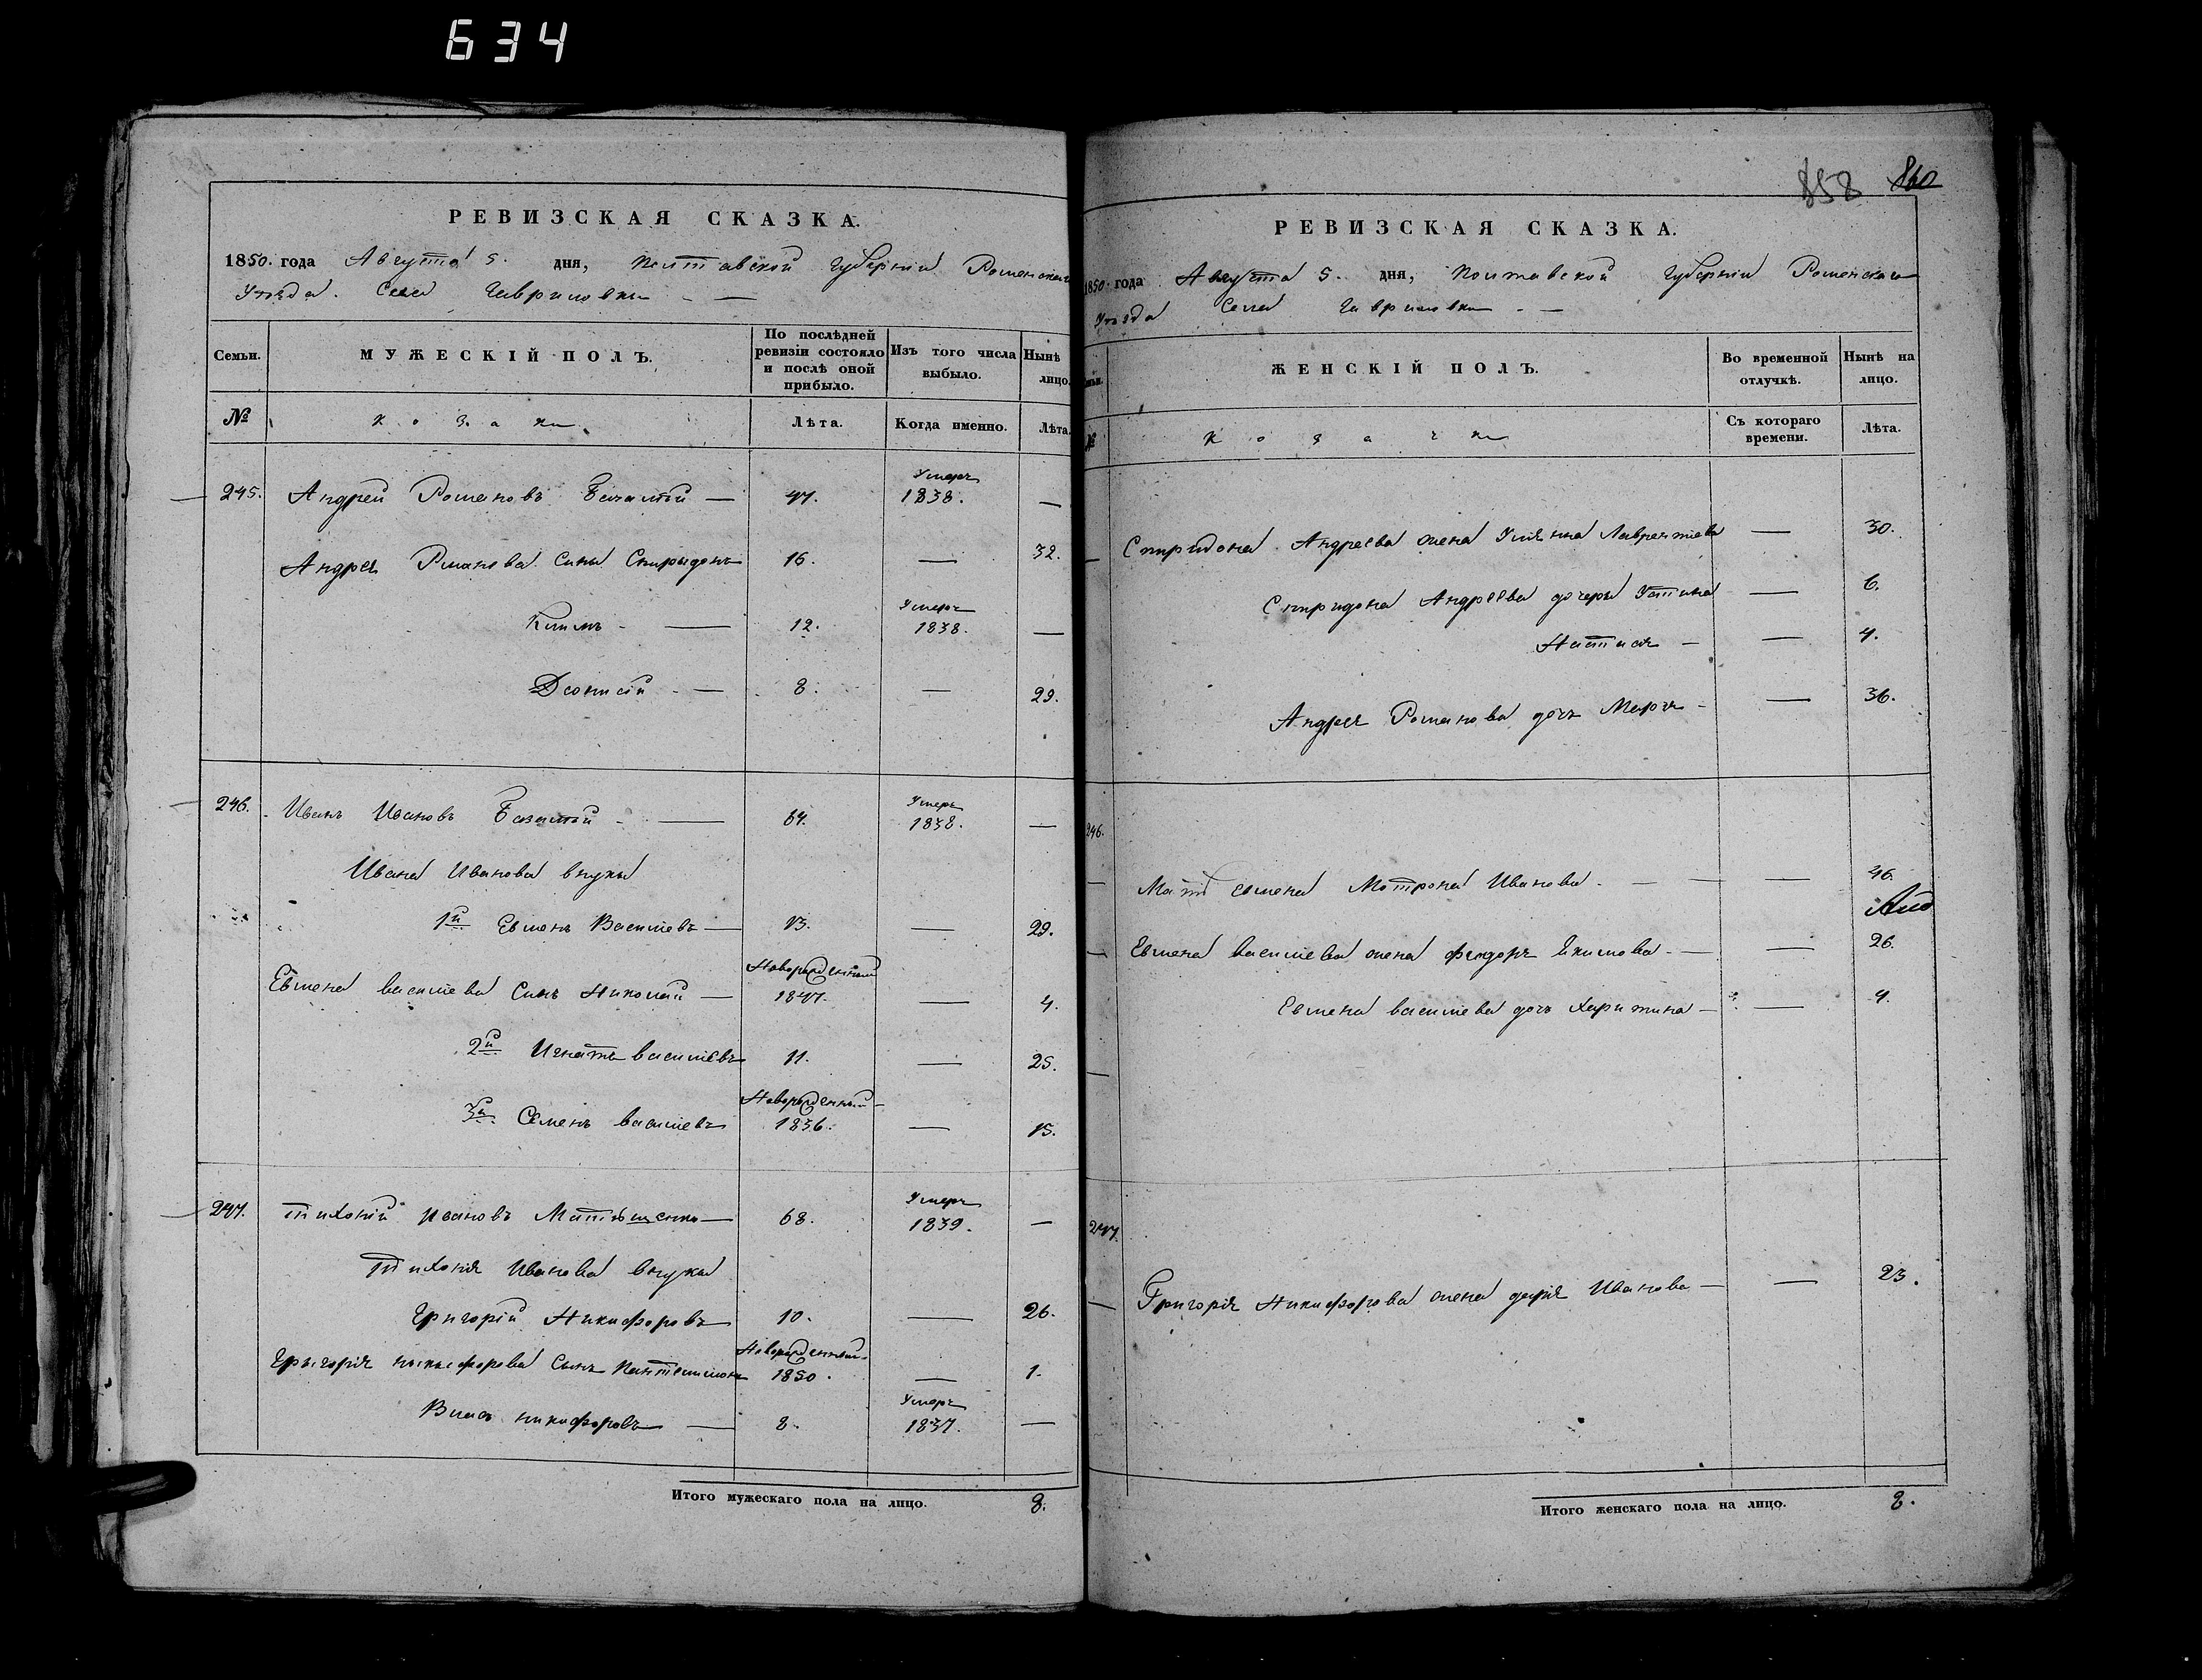 634
РЕВИЗСКАЯ СКАЗКА.
1850. года Августа 5. дня, Полтавской Губерніи Роменскаго
Уѣзда. Села Гавриловки
Семьи.
МУЖЕСКІЙ ПОЛЪ.
По послѣдней ревизіи состояло и послѣ оной прибыло.
Изъ того числа выбыло.
Нынѣ лицо.
№
Козаки
Лѣта.
Когда именно.
Лѣта.
245. Андрей Романовъ — 47. Умеръ 1838. —
Андрея Романова сынъ Спиридонъ 16. — 32.
Климъ — 12. Умеръ 1838. —
Діонисій — 8. — 29.
246. Иванъ Ивановъ — 64. Умеръ 1838. —
Ивана Иванова внуки
1й Евменъ Васильевъ — 13. — 29.
Евмена Васильева сынъ Николай — Новорожденный 1847. — 4.
2й Игнатъ Васильевъ 11. — 25.
3й Семенъ Васильевъ Новорожденный 1836. — 15.
247. Тихоній Ивановъ — 68. Умеръ 1839. —
Тихонія Иванова внуки
Григорій Никифоровъ 10. — 26.
Григорія Никифорова сынъ Пантелимонъ Новорожденный 1850. — 1.
Власъ Никифоровъ — 8. Умеръ 1837. —
Итого мужескаго пола на лицо. 8.
858 860
РЕВИЗСКАЯ СКАЗКА.
1850. года Августа 5. дня, Полтавской Губерніи Роменскаго
Уѣзда Села Гавриловки
ЖЕНСКІЙ ПОЛЪ.
Во временной отлучкѣ.
Нынѣ на лицо.
Козачки
Съ котораго времени.
Лѣта.
Спиридона Андреева жена Ульяна Лаврентіева — 30.
Спиридона Андреева дочери Устина — 6.
Настася — — 4.
Андрея Романова дочь Марья — — 36.
246.
Мать Евмена Мотрона Иванова — — 46.
Евмена Васильева жена Якимова — — 26.
Евмена Васильева дочь Харитина — — 4.
247.
Григорія Никифорова жена Дарія Иванова — — 23.
Итого женскаго пола на лицо. 8.